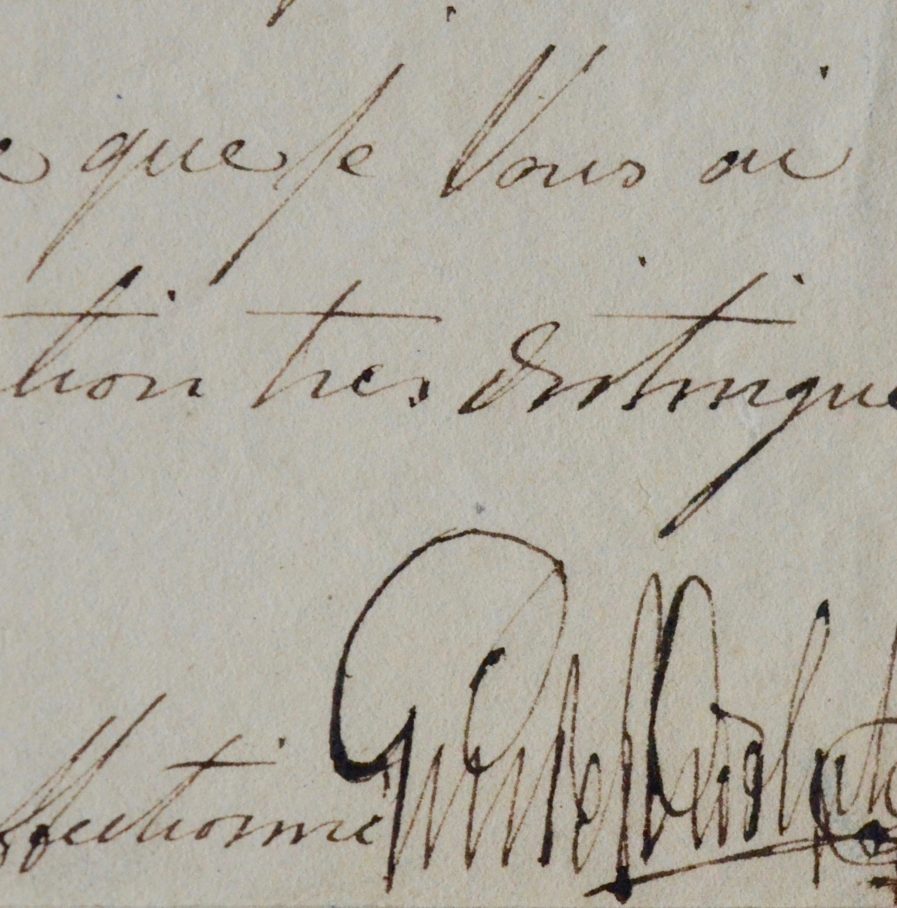 e que je Vous ai
tion tres distingue
ffectionné